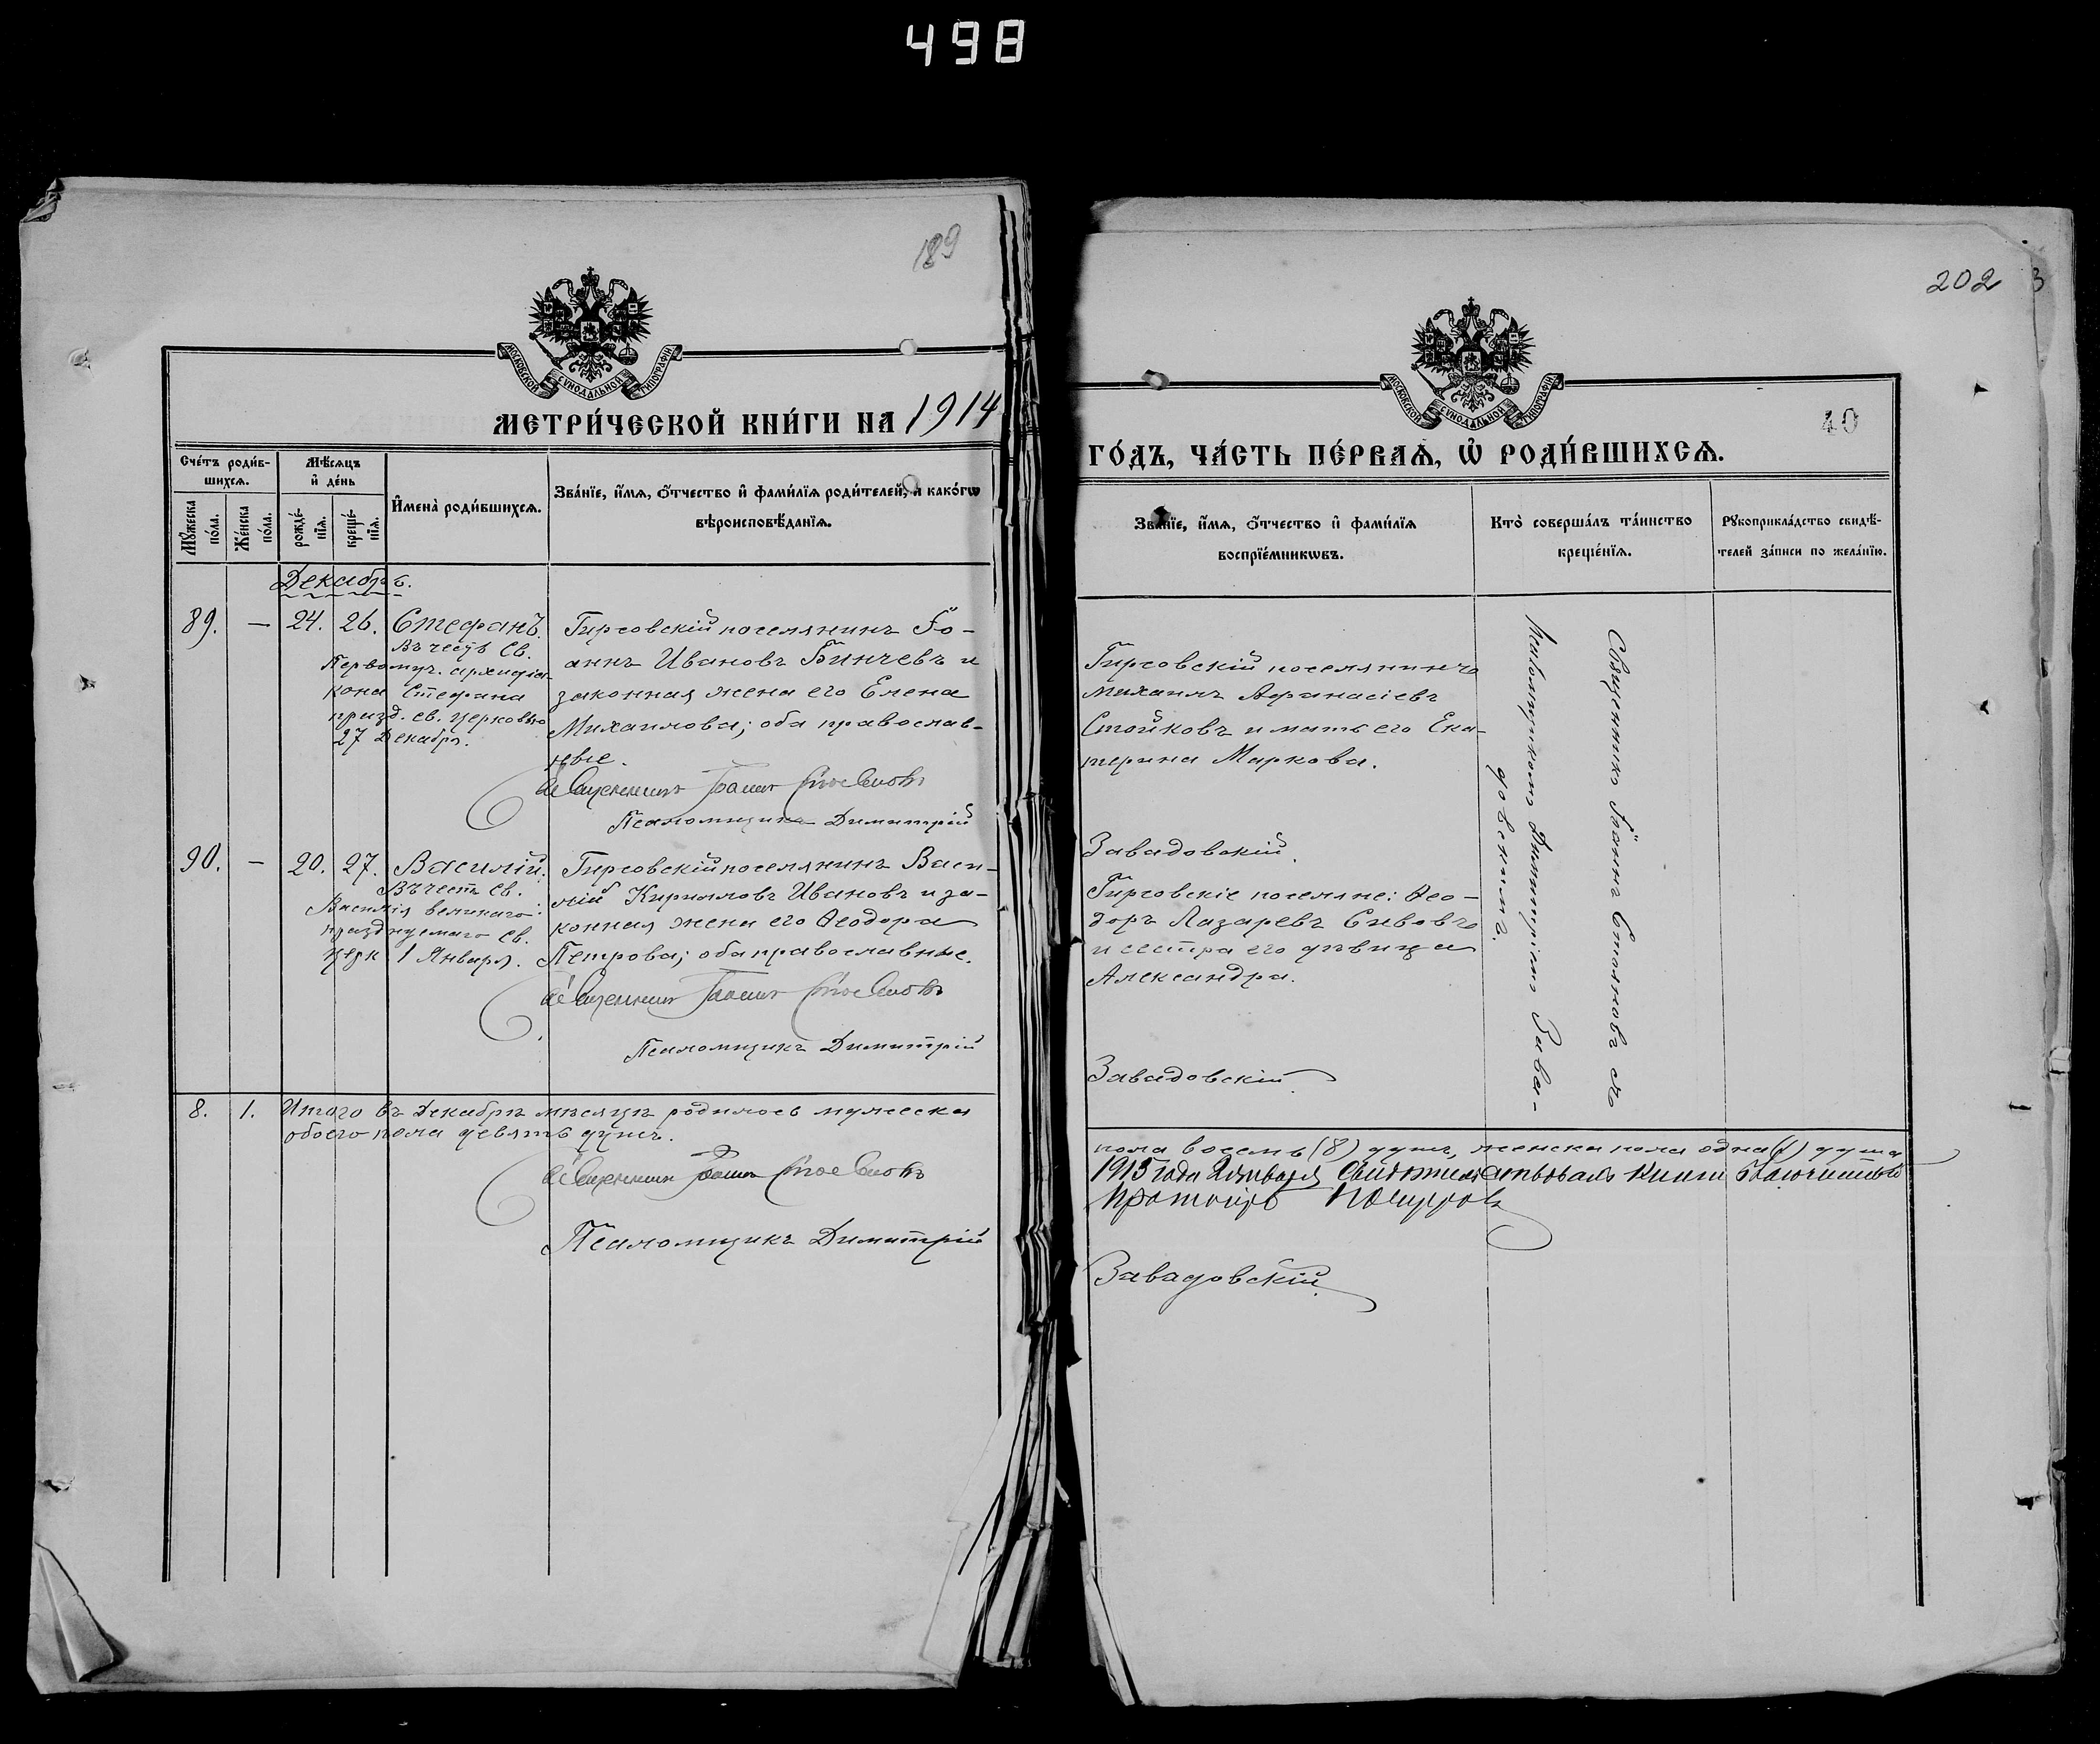 498
189
МОСКОВСКОЙ СѴНОДАЛЬНОЙ ТИПОГРАФІИ
МЕТРИ́ЧЕСКОЙ КНИ́ГИ НА 1914
Сче́тъ роди́в-
шихсѧ.
Мѣ́сѧцъ
и҆ де́нь
Мꙋ́жеска
по́ла.
Же́нска
по́ла.
рожде́-
нїѧ.
креще́-
нїѧ.
И҆мена̀ роди́вшихсѧ.
Зва́нїе, и҆́мѧ, ѻ҆́тчество и҆ фами́лїѧ роди́телей, и҆ како́гѡ
вѣроисповѣ́данїѧ.
Декабрь.
89. — 24. 26. Стефанъ.
Въ честь Св.
Первомуч. архидіа-
кона Стефана
празд. св. церковью
27 Декабря.
Гирсовскій поселянинъ Іо-
аннъ Ивановъ Бинчевъ и
законная жена его Елена
Михаилова; оба православ-
ные.
Священникъ Іоаннъ Стояновъ
Псаломщикъ Димитрій
90. — 20. 27. Василій.
Въ честь Св.
Василія великаго
празднуемаго св.
церк 1 Января.
Гирсовскій поселянинъ Васи-
лій Кирилловъ Ивановъ и за-
конная жена его Ѳеодора
Петрова; оба православные.
Священникъ Іоаннъ Стояновъ
Псаломщикъ Димитрій
8. 1. Итого въ Декабрѣ мѣсяцѣ родилось мужеска
обоего пола девять душъ.
Священникъ Іоаннъ Стояновъ
Псаломщикъ Димитрій
202 3
МОСКОВСКОЙ СѴНОДАЛЬНОЙ ТИПОГРАФІИ
40
ГО́ДЪ, ЧА́СТЬ ПЕ́РВАѦ, Ѡ҆ РОДИ́ВШИХСѦ.
Зва́нїе, и҆́мѧ, ѻ҆́тчество и҆ фами́лїѧ
воспрїе́мникѡвъ.
Кто̀ соверша́лъ та́инство
креще́нїѧ.
Рꙋкоприкла́дство свидѣ́-
телей за́писи по жела́нїю.
Гирсовскій поселянинъ
Михаилъ Аѳанасіевъ
Стойковъ и мать его Ека-
терина Маркова.
Завадовскій.
Гирсовскіе поселяне: Ѳео-
доръ Лазаревъ Сивовъ
и сестра его дѣвица
Александра.
Завадовскій
Священникъ Іоаннъ Стояновъ съ
псаломщикомъ Димитріемъ Зава-
довскимъ.
пола восемь (8) душъ, женска пола одна (1) душа
1915 года Января свидѣтельствовалъ книги Благочинный
Протоіер
Завадовскій.